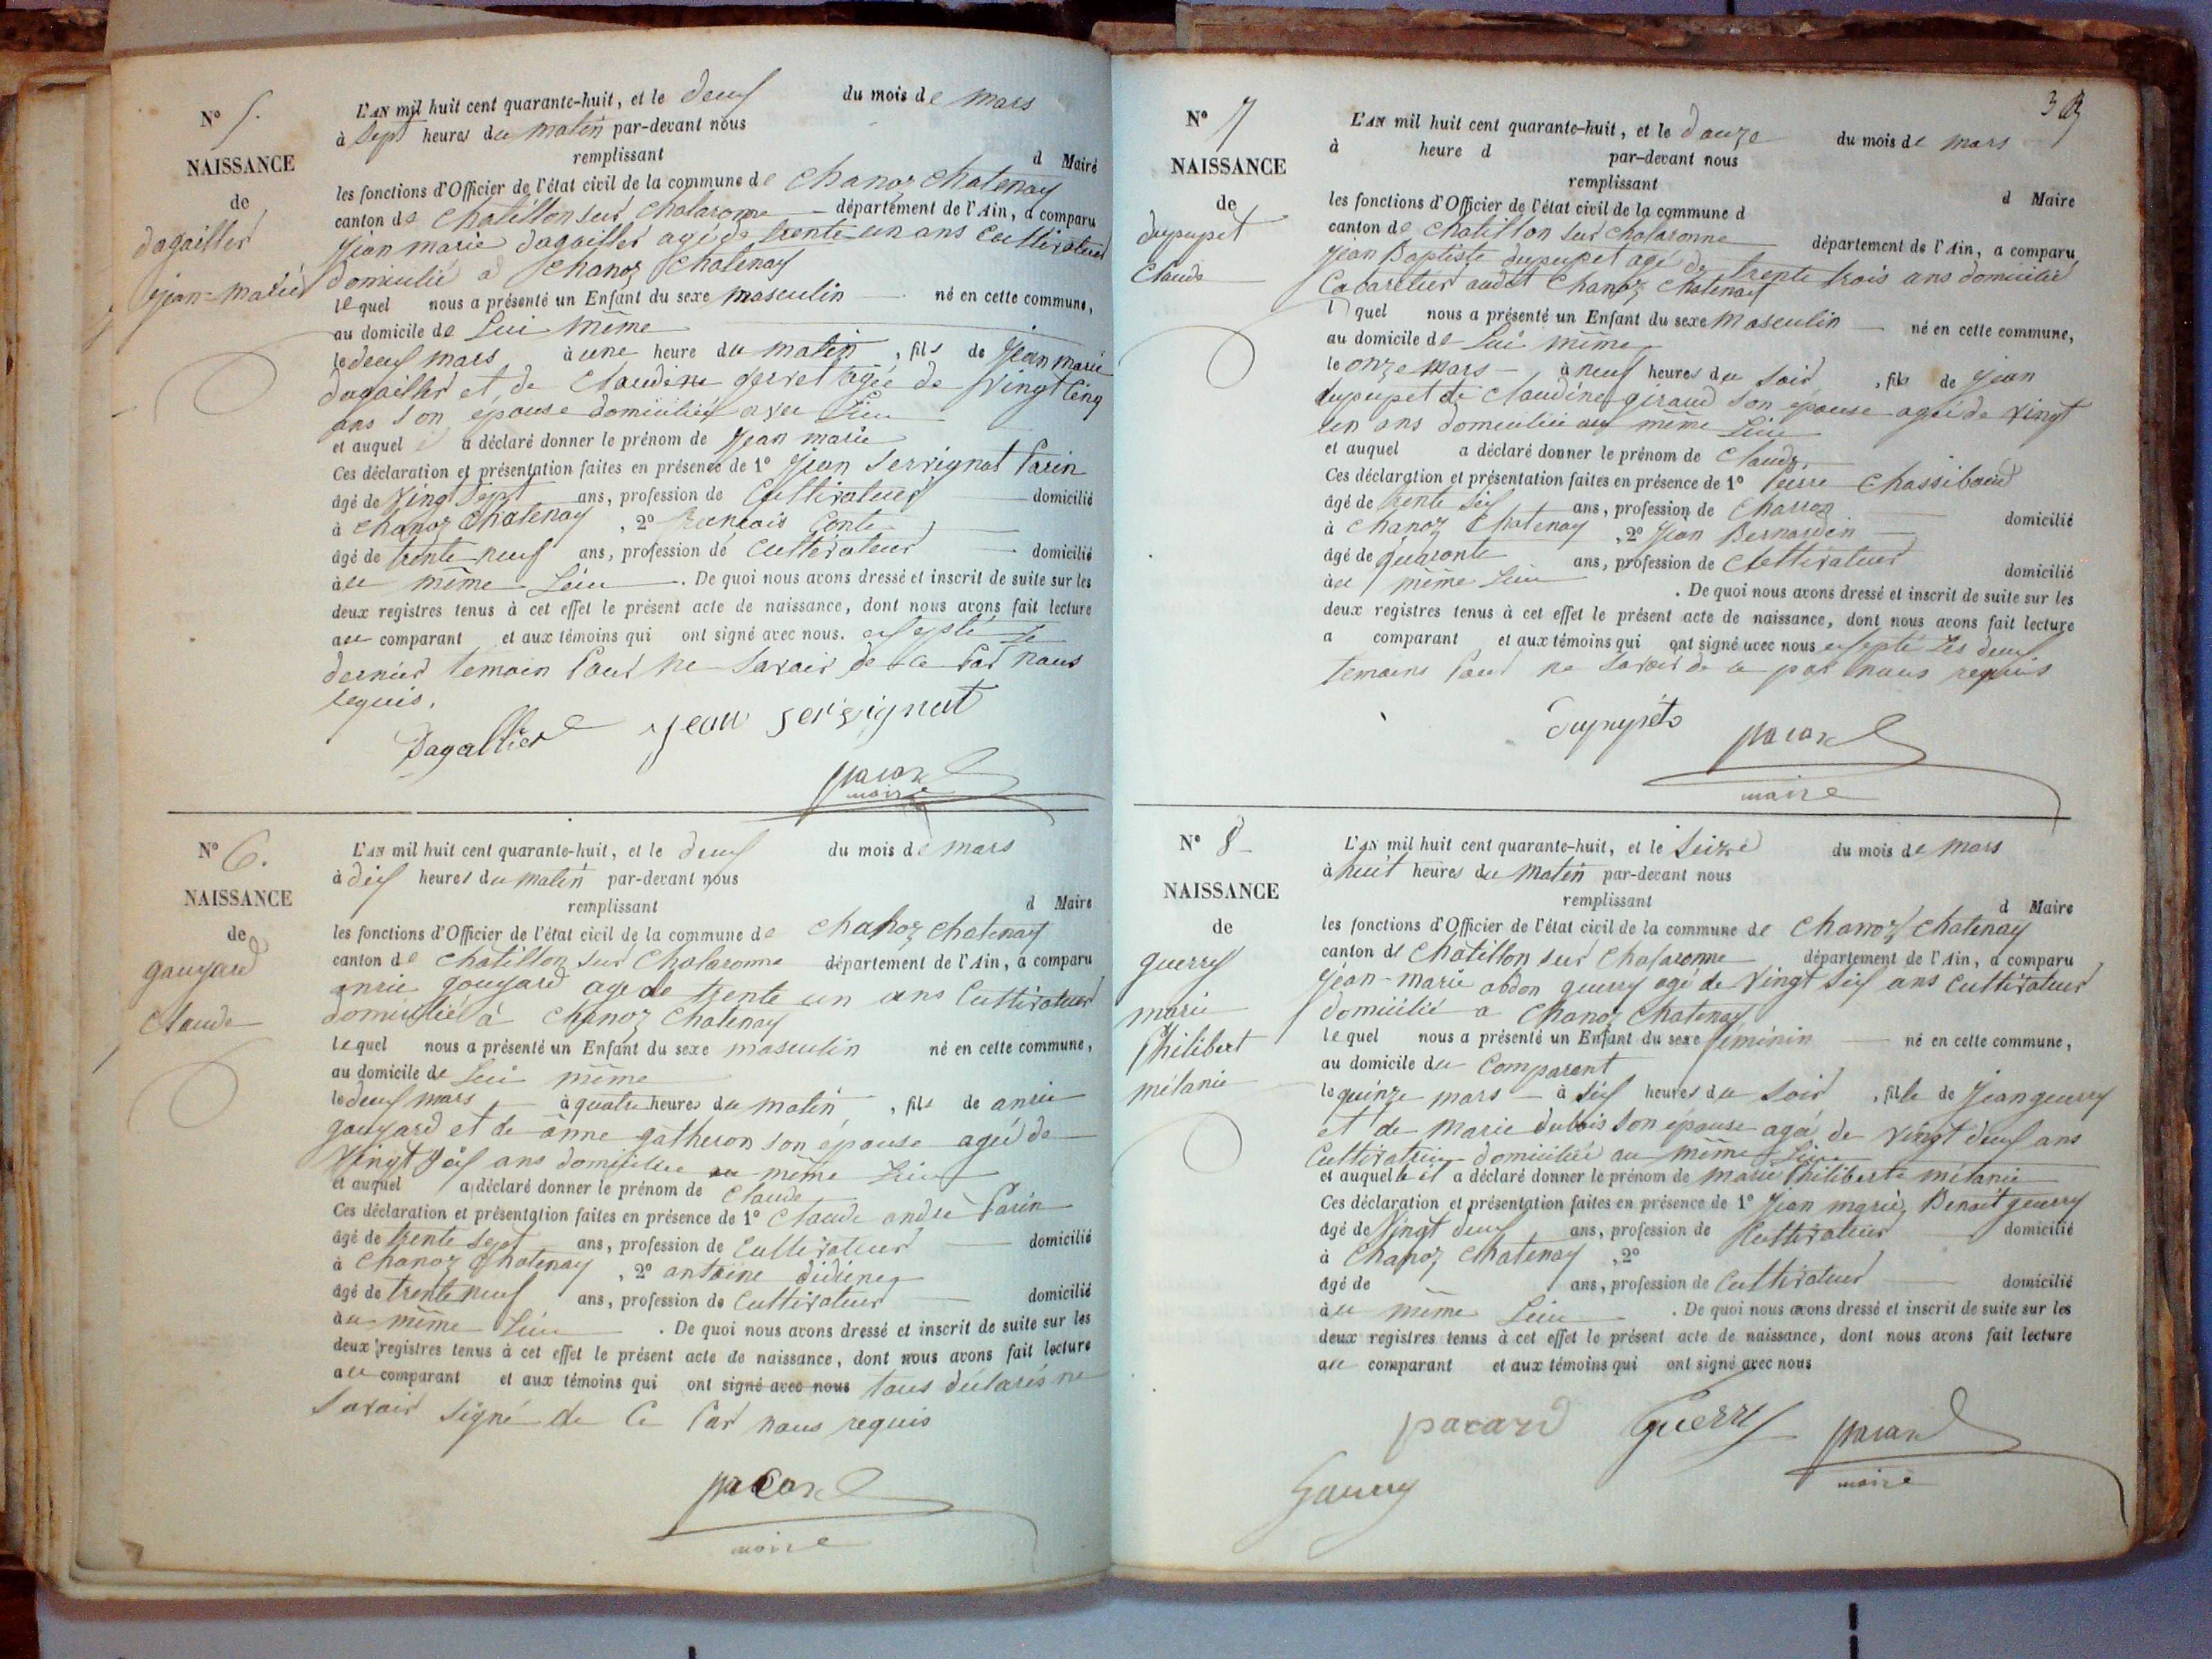 N° 5.
NAISSANCE
de
dagaillier
jean=marie
L'AN mil huit cent quarante-huit, et le deux du mois de mars
à sept heures du matin par-devant nous
remplissant d Maire
les fonctions d'Officier de l'état civil de la commune de chanoz chatenay
canton de chatillon sur chalaronne département de l'Ain, a comparu
jean marie dagaillier agé de trente-un ans cultivateur
domicilié a chanoz chatenay
lequel nous a présenté un Enfant du sexe masculin né en cette commune,
au domicile de lui même
le deux mars à une heure du matin, fils de jean marie
dagaillier et de Claudine gerret agée de vingt cinq
ans son épouse domiciliée
et auquel a déclaré donner le prénom de jean marie
Ces déclaration et présentation faites en présence de 1° jean servignat Parin
âgé de vingt sept ans, profession de cultivateur domicilié
à chanoz chatenay, 2° francois Conte
âgé de trente neuf ans, profession de cultivateur domicilié
au même lieu. De quoi nous avons dressé et inscrit de suite sur les
deux registres tenus à cet effet le présent acte de naissance, dont nous avons fait lecture
au comparant et aux témoins qui ont signé avec nous. excepté le
dernier temoin pour ne savoir de ce par nous
requis.
Dagallier jean servignat
pacard
maire
N° 6.
NAISSANCE
de
gouyard
Claude
L'AN mil huit cent quarante-huit, et le deux du mois de mars
à dix heures du matin par-devant nous
remplissant d Maire
les fonctions d'Officier de l'état civil de la commune de chanoz chatenay
canton de chatillon sur chalaronne département de l'Ain, a comparu
gouyard agé de trente un ans cultivateur
domicilié à chanoz chatenay
lequel nous a présenté un Enfant du sexe masculin né en cette commune,
au domicile de lui même
le deux mars, à quatre heures du matin, fils de
gouyard et de anne gatheron son épouse agée de
vingt six ans domiciliée au même lieu
et auquel a déclaré donner le prénom de Claude
Ces déclaration et présentation faites en présence de 1° Claude andré Parin
âgé de trente sept ans, profession de cultivateur domicilié
à chanoz chatenay, 2° antoine
âgé de trente neuf ans, profession de cultivateur domicilié
au même lieu. De quoi nous avons dressé et inscrit de suite sur les
deux registres tenus à cet effet le présent acte de naissance, dont nous avons fait lecture
au comparant et aux témoins qui ont signé avec nous tous déclarés ne
savoir signé de ce par nous requis
pacard
maire
N° 7
NAISSANCE
de
dupupet
Claude
L'AN mil huit cent quarante-huit, et le douze du mois de mars
à heure d par-devant nous
remplissant d Maire
les fonctions d'Officier de l'état civil de la commune d
canton de chatillon sur chalaronne département de l'Ain, a comparu
jean Baptiste dupupet agé de trente trois ans domicilié
Cabaretier audit chanoz chatenay
l quel nous a présenté un Enfant du sexe masculin né en cette commune,
au domicile de lui même
le onze mars à neuf heures du soir, fils de jean
dupupet de claudine giraud son épouse agée de vingt
un ans domiciliée au même lieu
et auquel a déclaré donner le prénom de Claude
Ces déclaration et présentation faites en présence de 1° Pierre Chassiboud
âgé de trente six ans, profession de Charron domicilié
à chanoz chatenay, 2° jean Bernardin
âgé de quaronte ans, profession de cultivateur domicilié
au même lieu. De quoi nous avons dressé et inscrit de suite sur les
deux registres tenus à cet effet le présent acte de naissance, dont nous avons fait lecture
a comparant et aux témoins qui ont signé avec nous excepté les deux
temoins pour ne savoir de ce par nous requis
pacard
maire
N° 8
NAISSANCE
de
guerry
marie
Philibert
mélanie
L'AN mil huit cent quarante-huit, et le seize du mois de mars
à huit heures du matin par-devant nous
remplissant d Maire
les fonctions d'Officier de l'état civil de la commune de chanoz chatenay
canton de chatillon sur chalaronne département de l'Ain, a comparu
jean-marie abdon guerry agé de vingt six ans cultivateur
domicilié a chanoz chatenay
lequel nous a présenté un Enfant du sexe féminin né en cette commune,
au domicile du comparant
le quinze mars à six heures du soir, fille de jean guerry
et de marie dubois son épouse agée de vingt deux ans
cultivatrice domiciliée au même lieu
et auquelle il a déclaré donner le prénom de marie Philiberte mélanie
Ces déclaration et présentation faites en présence de 1° jean marie Benoit guerry
âgé de vingt deux ans, profession de cultivateur domicilié
à chanoz chatenay, 2°
âgé de ans, profession de cultivateur domicilié
au même lieu. De quoi nous avons dressé et inscrit de suite sur les
deux registres tenus à cet effet le présent acte de naissance, dont nous avons fait lecture
au comparant et aux témoins qui ont signé avec nous
pacard Guerry pacard
maire